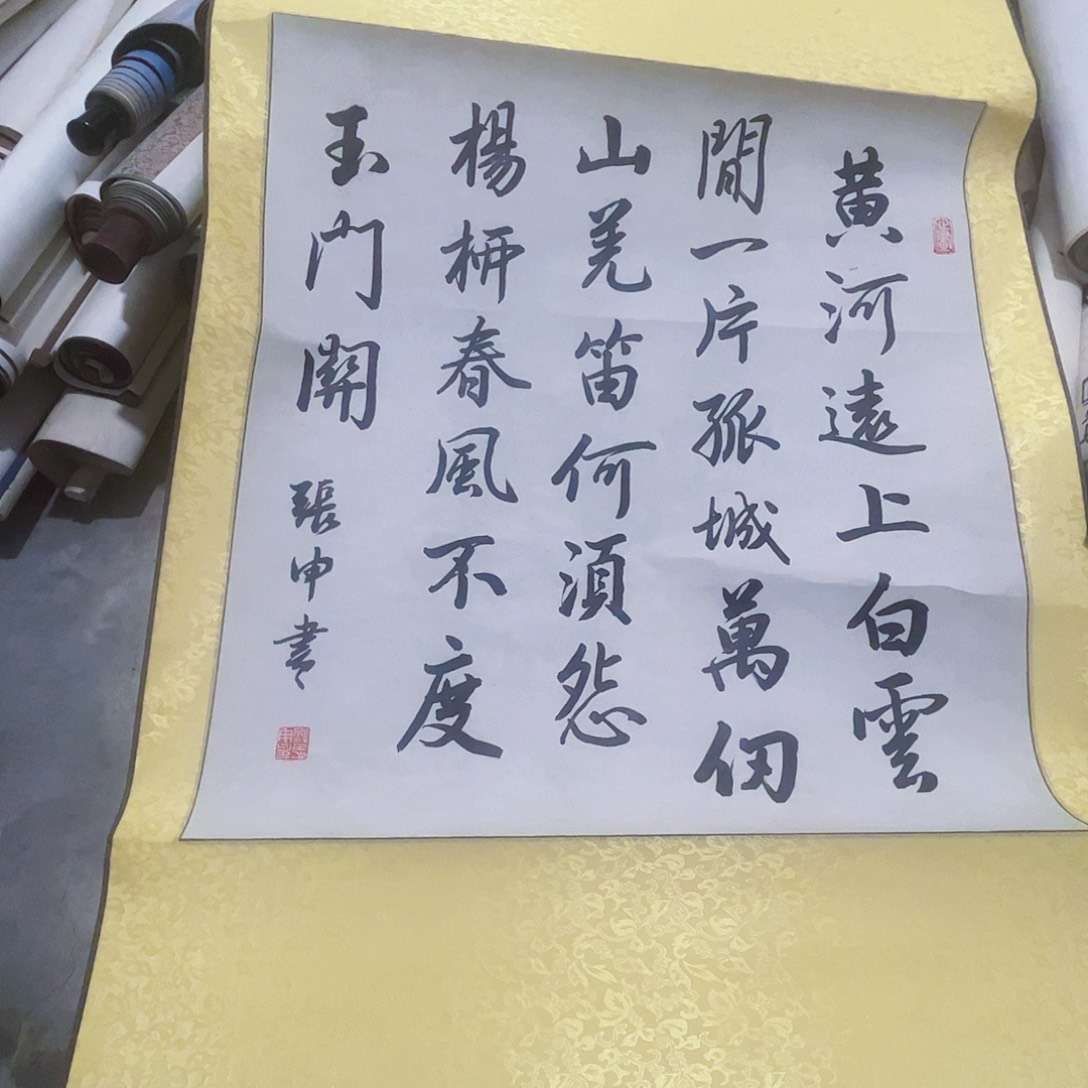 黄河遠上白雲
間一片孤城萬仞
山羌笛何須怨
楊柳春風不度
玉門關
張申書